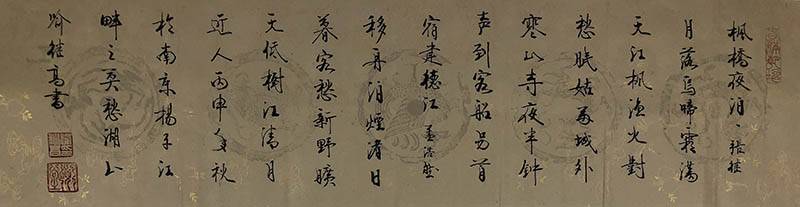 楓橋夜泊、張继
月落烏啼霜滿
天江楓漁火對
愁眠姑蘇城外
寒山寺夜半钟
声到客船另首
宿建德江 孟浩然
移舟泊煙渚日
暮客愁新野曠
天低樹江清月
近人丙申年秋
於南京揚子江
畔之莫愁湖上
喻继高書